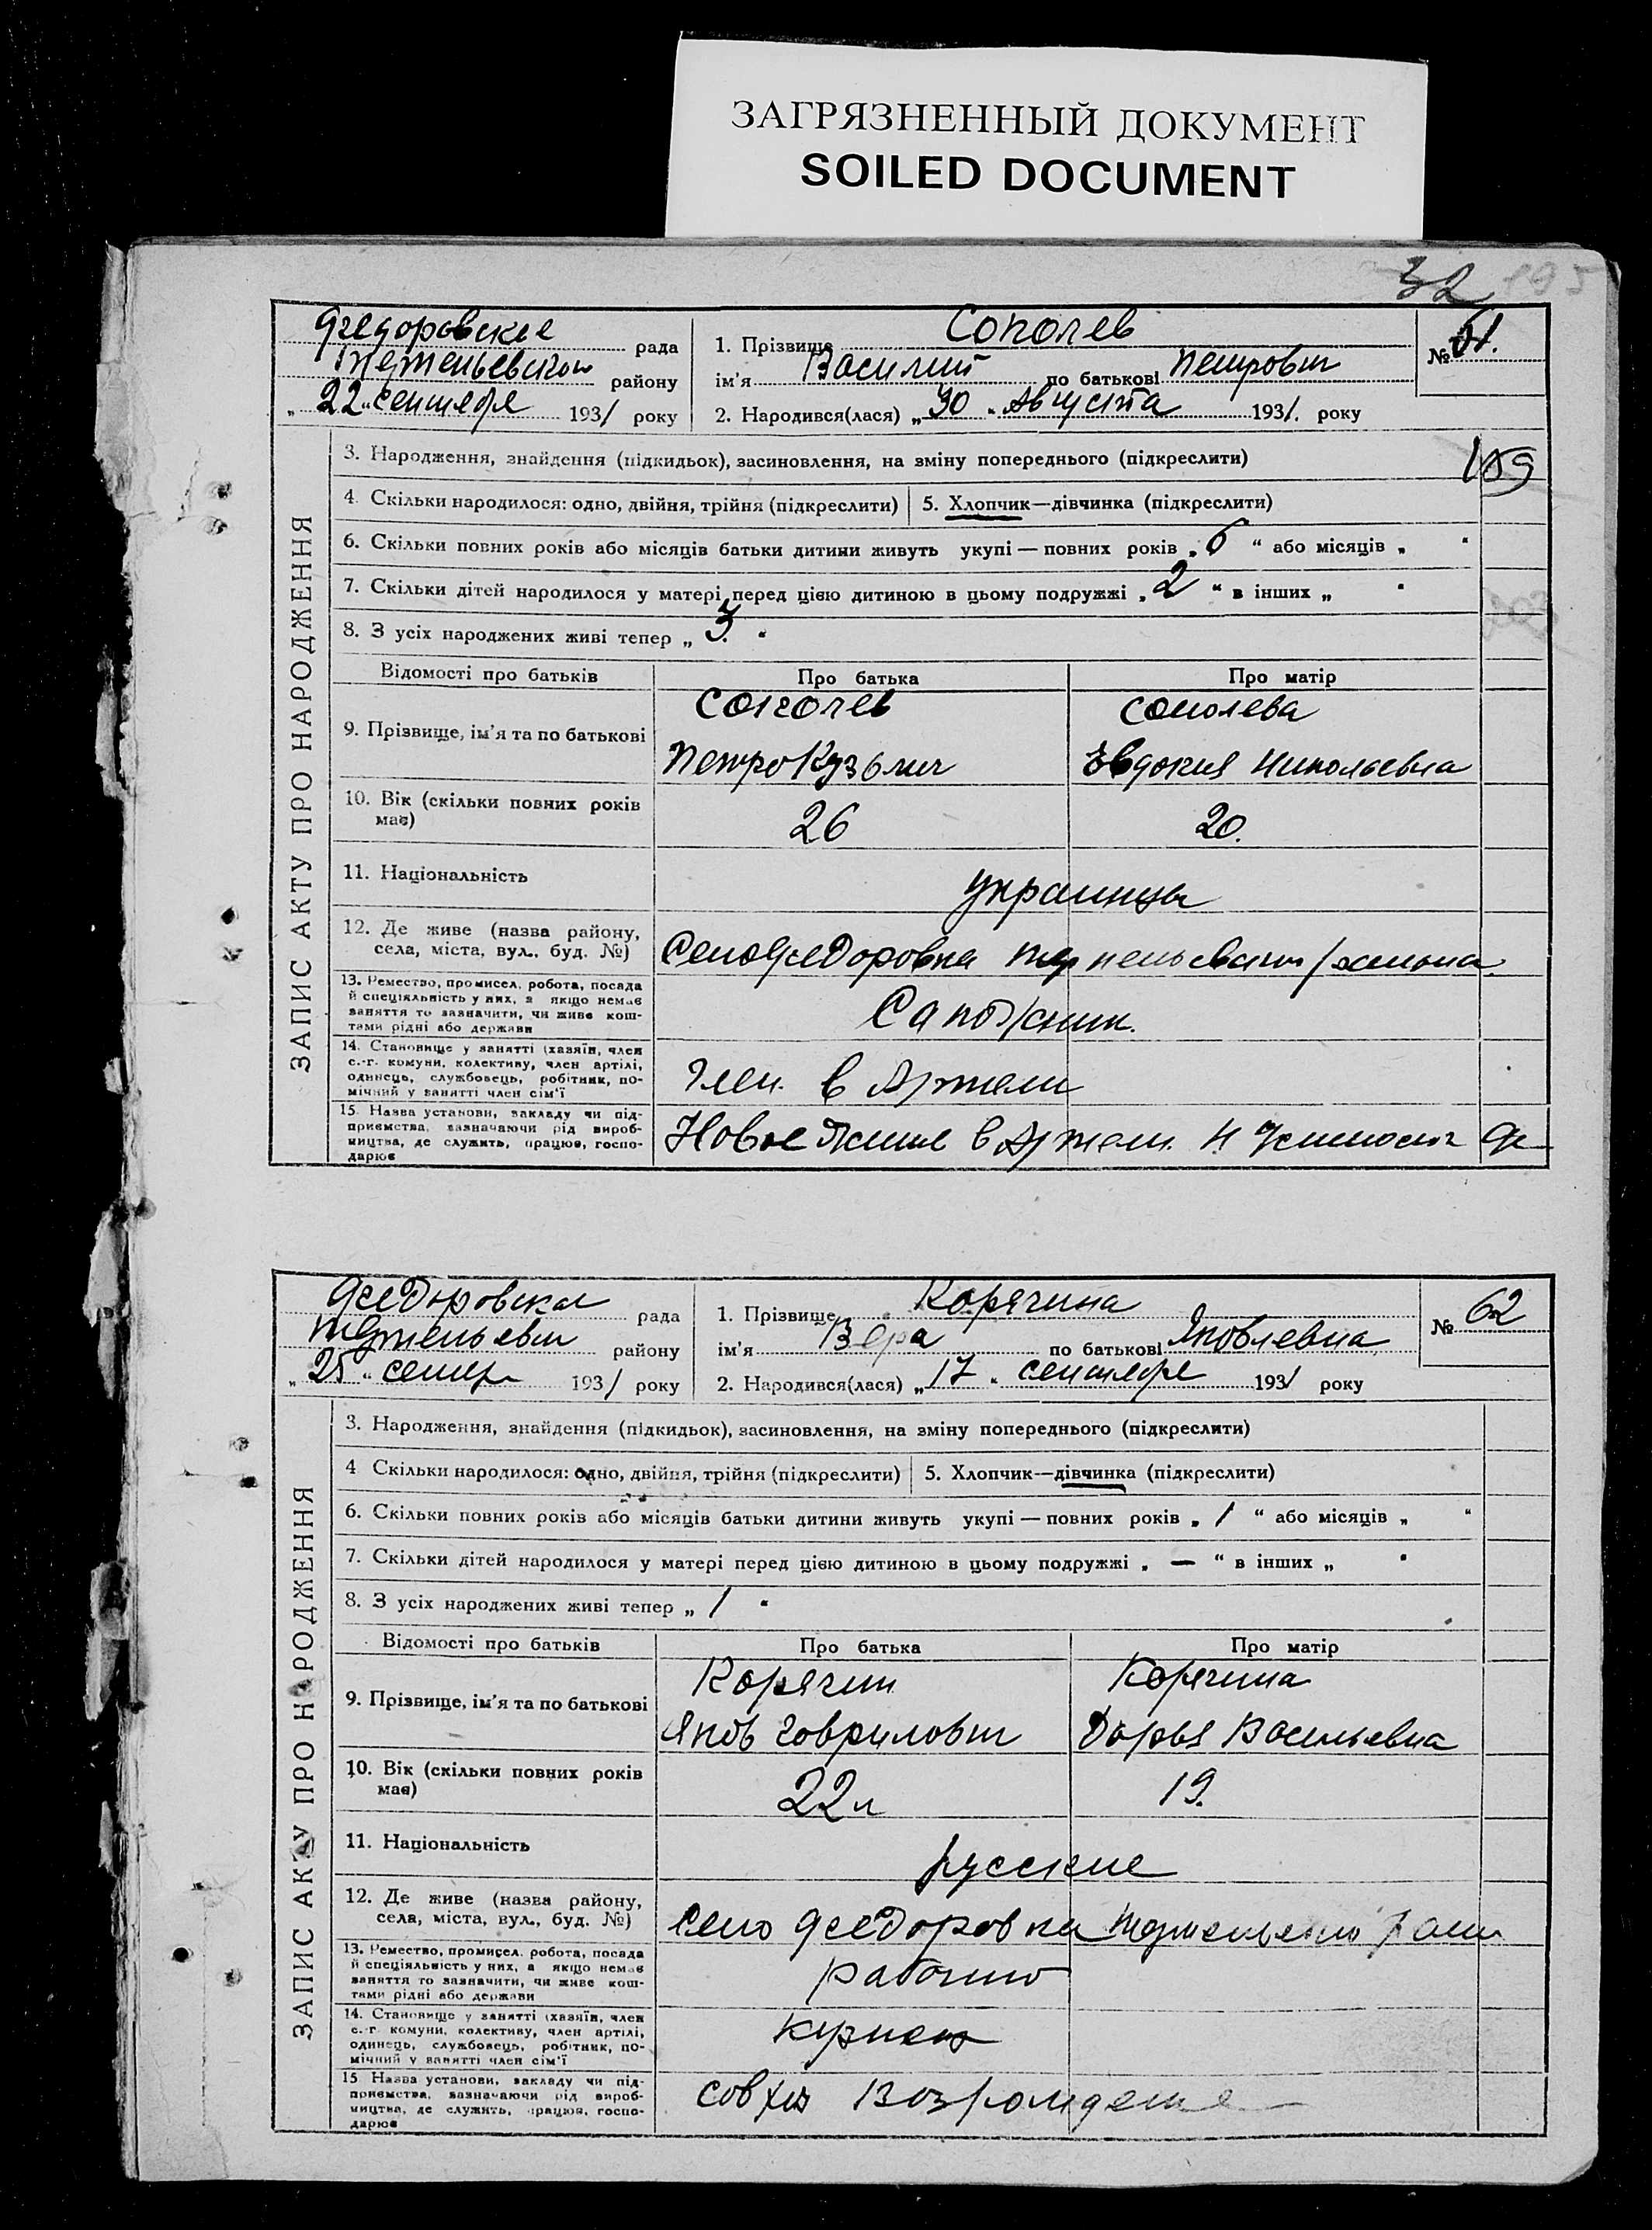 ЗАГРЯЗНЕННЫЙ ДОКУМЕНТ
SOILED DOCUMENT
32 195
Федоровское рада
району
„22„ сентебре 1931 року
1. Прізвище Соколев
ім'я Василий по батькові Петрович
2. Народився(лася) „30„ Августа 1931. року
№ 61.
ЗАПИС АКТУ ПРО НАРОДЖЕННЯ
3. Народження, знайдення (підкидьок), засиновлення, на зміну попереднього (підкреслити)
159
4. Скільки народилося: одно, двійня, трійня (підкреслити) 5. Хлопчик—дівчинка (підкреслити)
6. Скільки повних років або місяців батьки дитини живуть укупі — повних років „6“ або місяців „ “
7. Скільки дітей народилося у матері перед цією дитиною в цьому подружжі „2“ в інших „ “
8. З усіх народжених живі тепер „3.“
Відомості про батьків Про батька Про матір
9. Прізвище, ім'я та по батькові
Соколев Соколева
Петро Кузьмич Евдокия Николаевна
10. Вік (скільки повних років має)
26 20.
11. Національність
украинцы
12. Де живе (назва району, села, міста, вул., буд. №)
Село Федоровка района.
13. Ремество, промисел, робота, посада й спеціяльність у них, а якщо немає заняття то зазначити, чи живе коштами рідні або держави
Сапожник.
14. Становище у занятті (хазяїн, член с.-г. комуни, колективу, член артілі, одинець, службовець, робітник, помічний у занятті член сім'ї
Член. в Артели
15. Назва установи, закладу чи підприємства, зазначаючи рід виробництва, де служить, працює, господарює
Новое в Артели.
Федоровская рада
району
„25„ сентяр 1931 року
1. Прізвище Корячина
ім'я Вера по батькові Яковлевна
2. Народився(лася) „17„ сентебре 1931 року
№ 62
ЗАПИС АКТУ ПРО НАРОДЖЕННЯ
3. Народження, знайдення (підкидьок), засиновлення, на зміну попереднього (підкреслити)
4 Скільки народилося: одно, двійня, трійня (підкреслити) 5. Хлопчик—дівчинка (підкреслити)
6. Скільки повних років або місяців батьки дитини живуть укупі — повних років „1“ або місяців „ “
7. Скільки дітей народилося у матері перед цією дитиною в цьому подружжі „—“ в інших „ “
8. З усіх народжених живі тепер „1“
Відомості про батьків Про батька Про матір
9. Прізвище, ім'я та по батькові
Корячин Корячина
Яков Гаврилович Дарья Васильевна
10. Вік (скільки повних років має)
22л 19.
11. Національність
русские
12. Де живе (назва району, села, міста, вул., буд. №)
Село Федоровка
13. Ремество, промисел, робота, посада й спеціяльність у них, а якщо немає заняття то зазначити, чи живе коштами рідні або держави
рабочий
14. Становище у занятті (хазяїн, член с.-г. комуни, колективу, член артілі, одинець, службовець, робітник, помічний у занятті член сім'ї
кузнец
15 Назва установи, закладу чи підприємства, зазначаючи рід виробництва, де служить, працює, господарює
совхоз Возрождение